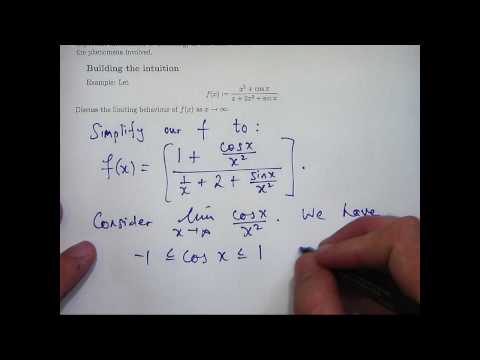 the phenomena involved.
Building the intuition
Example: Let
f(x) := \frac{x² + cos x}{x + 2x² + sin x}
Discuss the limiting behaviour of f(x) as x → ∞.
Simplify our f to :
f(x) = [ \frac{1 + \frac{cos x}{x²}}{\frac{1}{x} + 2 + \frac{sin x}{x²}} ] .
Consider lim_{x→∞} \frac{cos x}{x²} . We have
-1 ≤ cos x ≤ 1